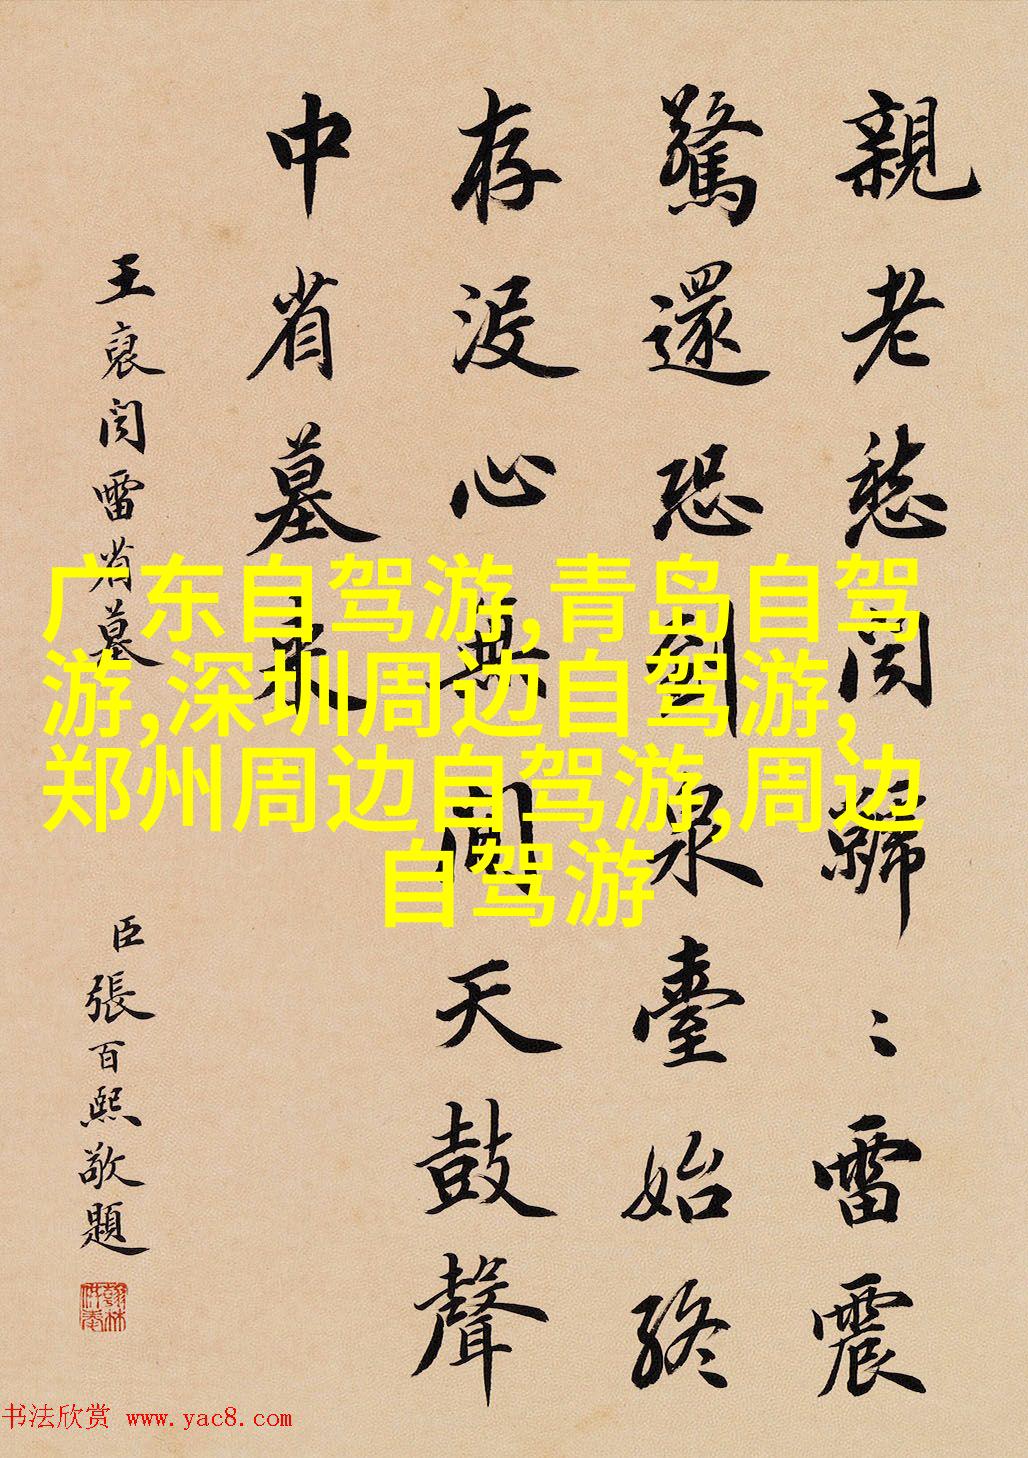 親老愁闻〻雷震
驚還恐到泉臺始終
存没心無間天鼓聲
中省墓來
王裒闻雷省墓
臣張百熙敬題
翰林供奉
广东自驾游,青岛自驾
游,深圳周边自驾游,
郑州周边自驾游,周边
自驾游
书法欣赏 www.yac8.com